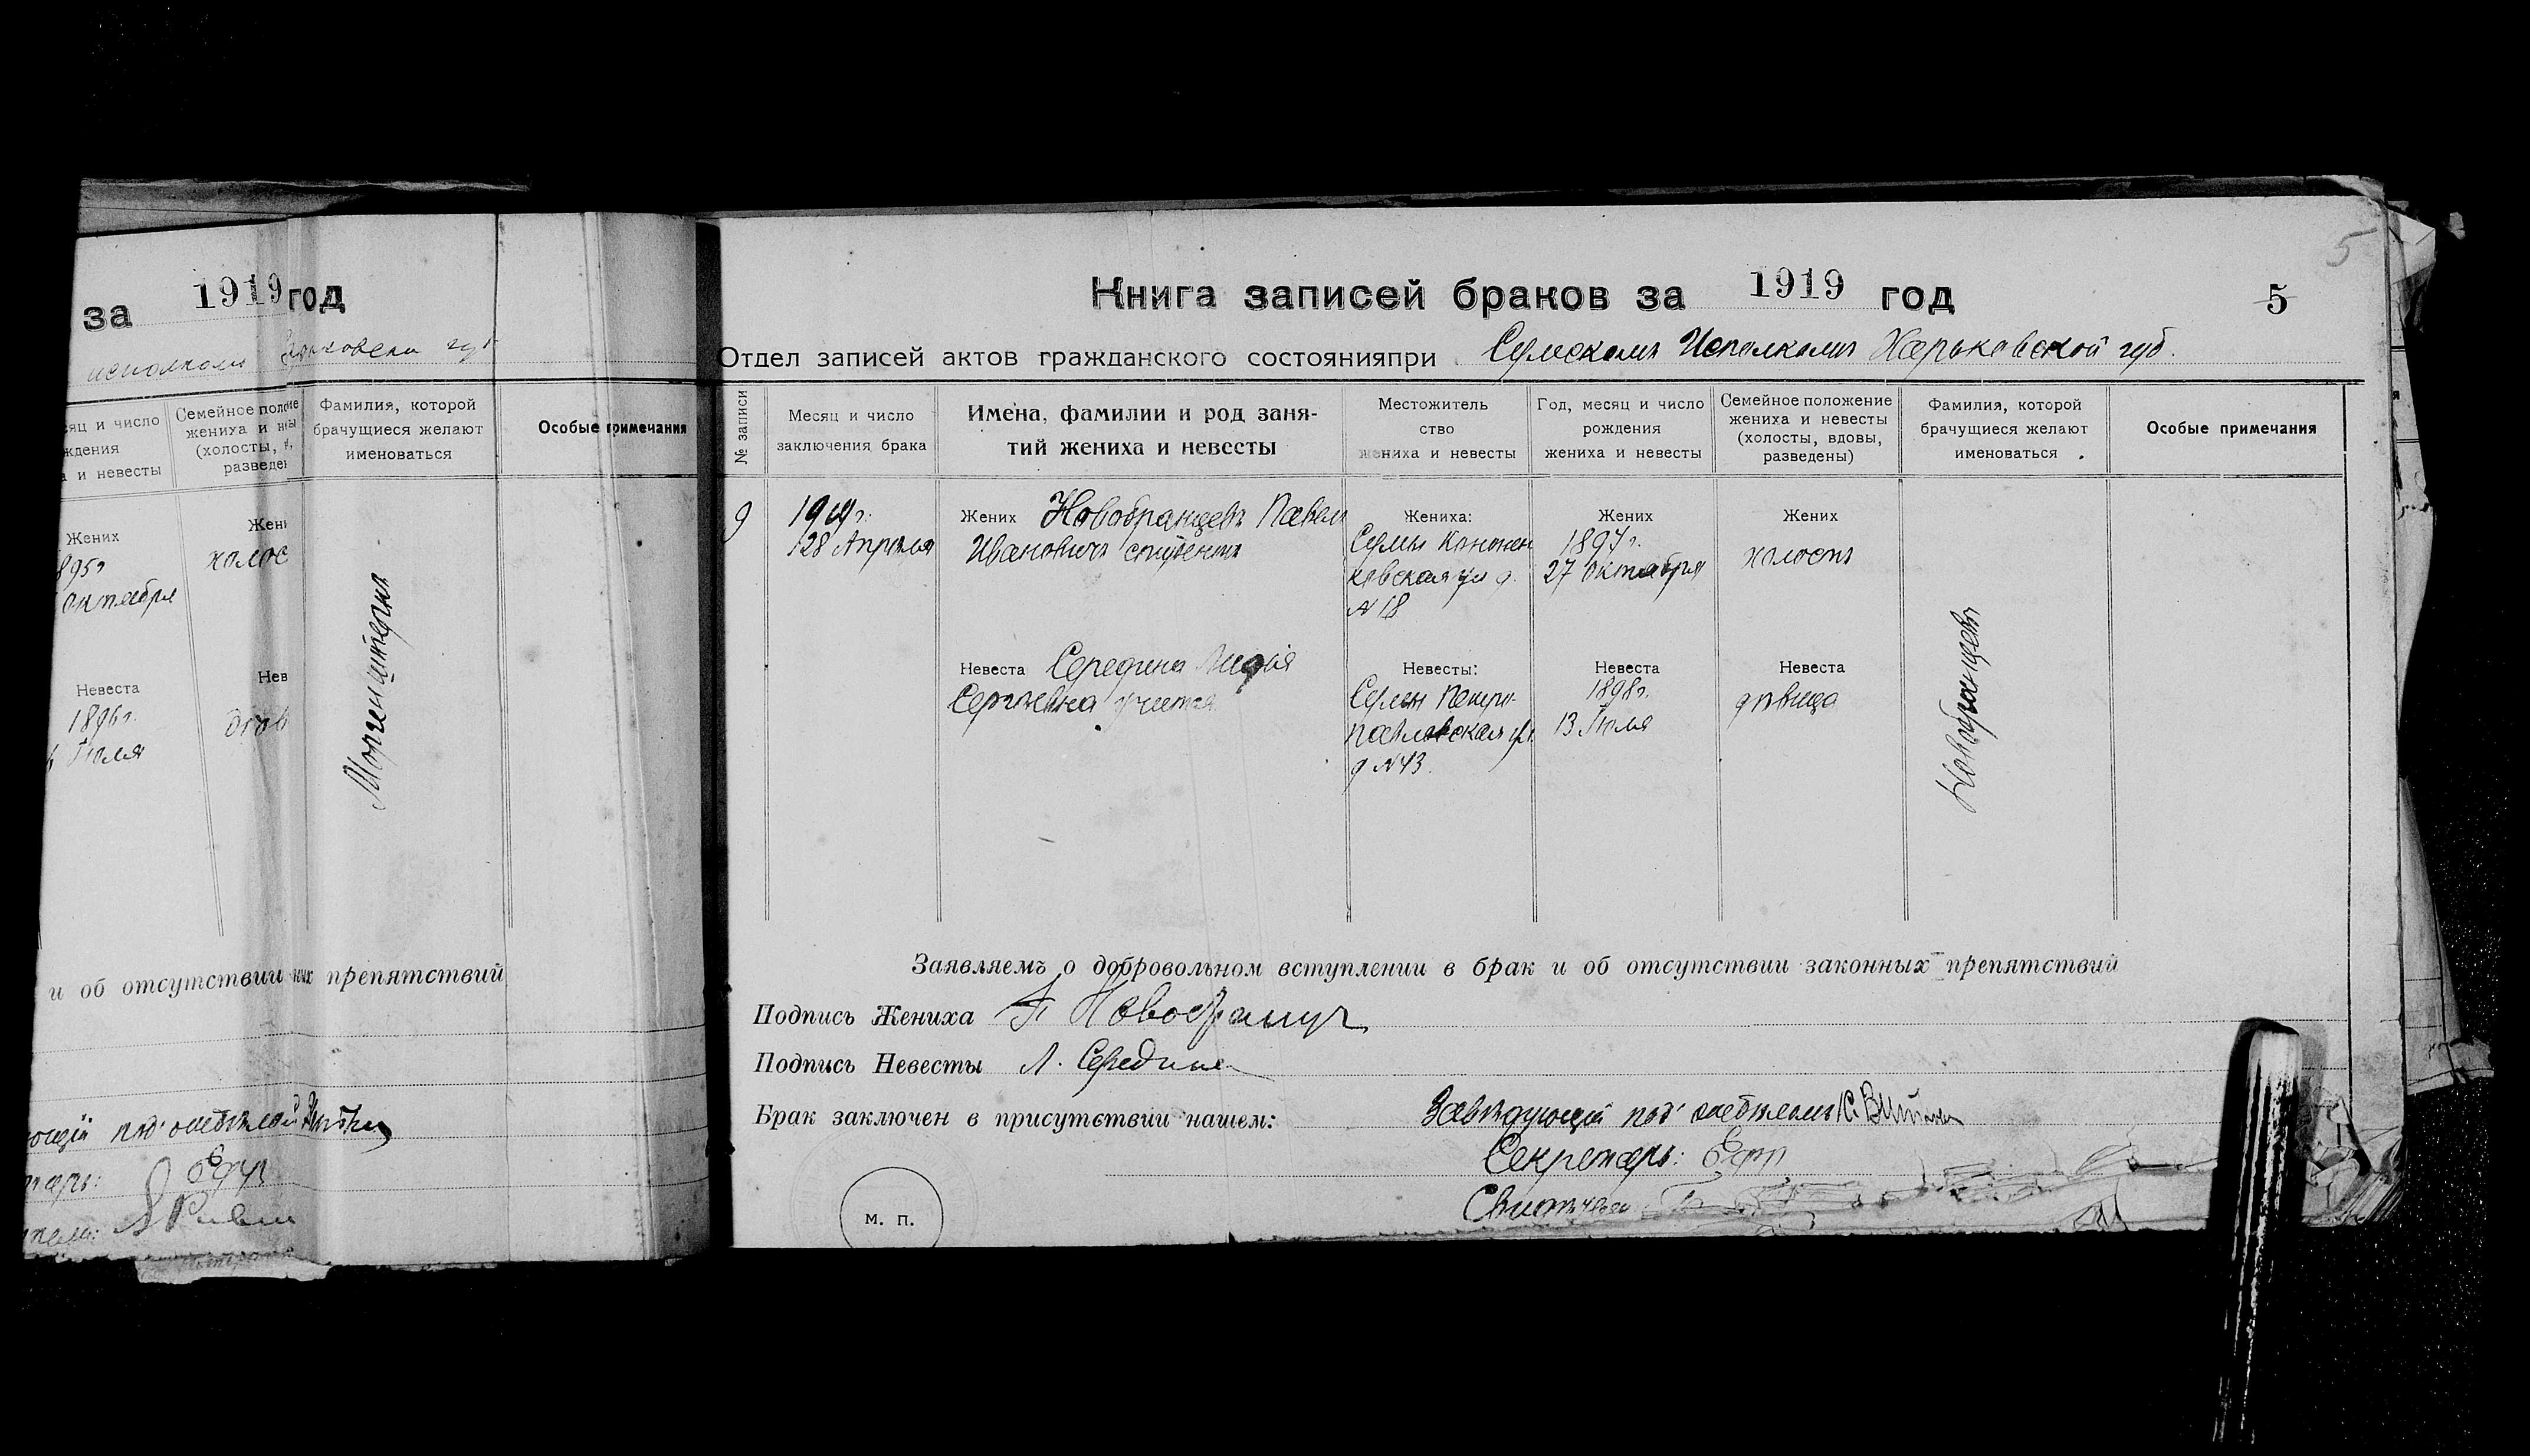 за 1919 год
исполкоме Харьковской губ
Семейное
яц и число жениха и
ждения (холосты,
а и невесты разведен
Фамилия, которой
брачущиеся желают
именоваться
Особые примечания
Жених
895г
октября
Жени
холос
Невеста
1896г.
Июля
Нев
Моргенштернъ
и об отсутствии препятствий
ющій под'отдѣломъ
5
Книга записей браков за 1919 год
5
Отдел записей актов гражданского состоянияпри Сумскомъ Исполкомѣ Харьковской губ.
№ записи
Месяц и число
заключения брака
Имена, фамилии и род заня-
тий жениха и невесты
Местожитель
ство
жениха и невесты
Год, месяц и число
рождения
жениха и невесты
Семейное положение
жениха и невесты
(холосты, вдовы,
разведены)
Фамилия, которой
брачущиеся желают
именоваться
Особые примечания
9
1919г.
28 Апрѣля
Жених Новобранцевъ Павелъ
Ивановичъ студентъ
Жениха:
Сумы Кононен
ковская ул д.
N 18
Жених
1897г.
27 октября
Жених
холостъ
Невеста Середина Лидія
Сергѣевна
Невесты:
Сумы Петро-
павловская ул.
д N43.
Невеста
1898г.
13 Іюля
Невеста
дѣвица
Новобранцевъ
Заявляемъ о добровольном вступлении в брак и об отсутствии законных препятствий
Подпись Жениха П Новобранцев
Подпись Невесты Л. Середина
Брак заключен в присутствии нашем: Завѣдующій под'отдѣломъ
Секретарь:
Свидѣтели
м. п.